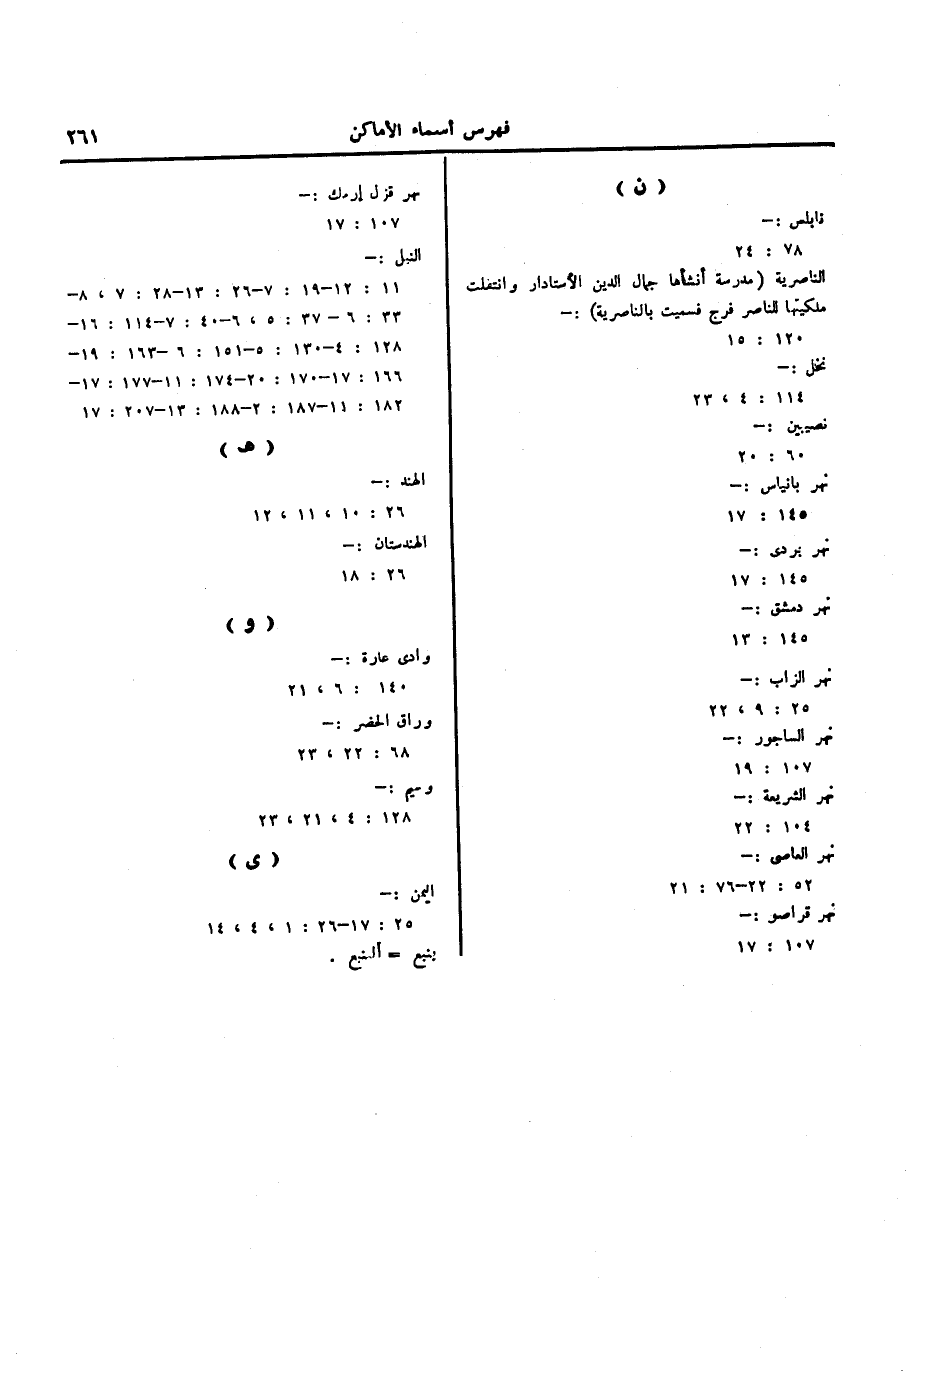 فهرس أسماء الأماكن ٢٦١
( ن )
نابلس :—
٧٨ : ٢٤
الناصرية (مدرسة أنشأها جمال الدين الأستادار وانتقلت
ملكيتها للناصر فرج فسميت بالناصرية) :—
١٢٠ : ١٥
نخل :—
١١٤ : ٤ ، ٢٣
نصيبين :—
٦٠ : ٢٠
نهر بانياس :—
١٤٥ : ١٧
نهر بردى :—
١٤٥ : ١٧
نهر دمشق :—
١٤٥ : ١٣
نهر الزاب :—
٢٥ : ٩ ، ٢٢
نهر الساجور :—
١٠٧ : ١٩
نهر الشريعة :—
١٠٤ : ٢٢
نهر العاصى :—
٥٢ : ٢٢—٧٦ : ٢١
نهر قراصو :—
١٠٧ : ١٧
نهر قزل إرمك :—
١٠٧ : ١٧
النيل :—
١١ : ١٢—١٩ : ٧—٢٦ : ١٣—٢٨ : ٧ ، ٨—
٣٣ : ٦ — ٣٧ : ٥ ، ٦—٤٠ : ٧—١١٤ : ١٦—
١٢٨ : ٤—١٣٠ : ٥—١٥١ : ٦ —١٦٣ : ١٩—
١٦٦ : ١٧—١٧٠ : ٢٠—١٧٤ : ١١—١٧٧ : ١٧—
١٨٢ : ١١—١٨٧ : ٢—١٨٨ : ١٣—٢٠٧ : ١٧
( هـ )
الهند :—
٢٦ : ١٠ ، ١١ ، ١٢
الهندستان :—
٢٦ : ١٨
( و )
وادى عارة :—
١٤٠ : ٦ ، ٢١
وراق الحضر :—
٦٨ : ٢٢ ، ٢٣
وسيم :—
١٢٨ : ٤ ، ٢١ ، ٢٣
( ى )
اليمن :—
٢٥ : ١٧—٢٦ : ١ ، ٤ ، ١٤
ينبع = ألينبع .